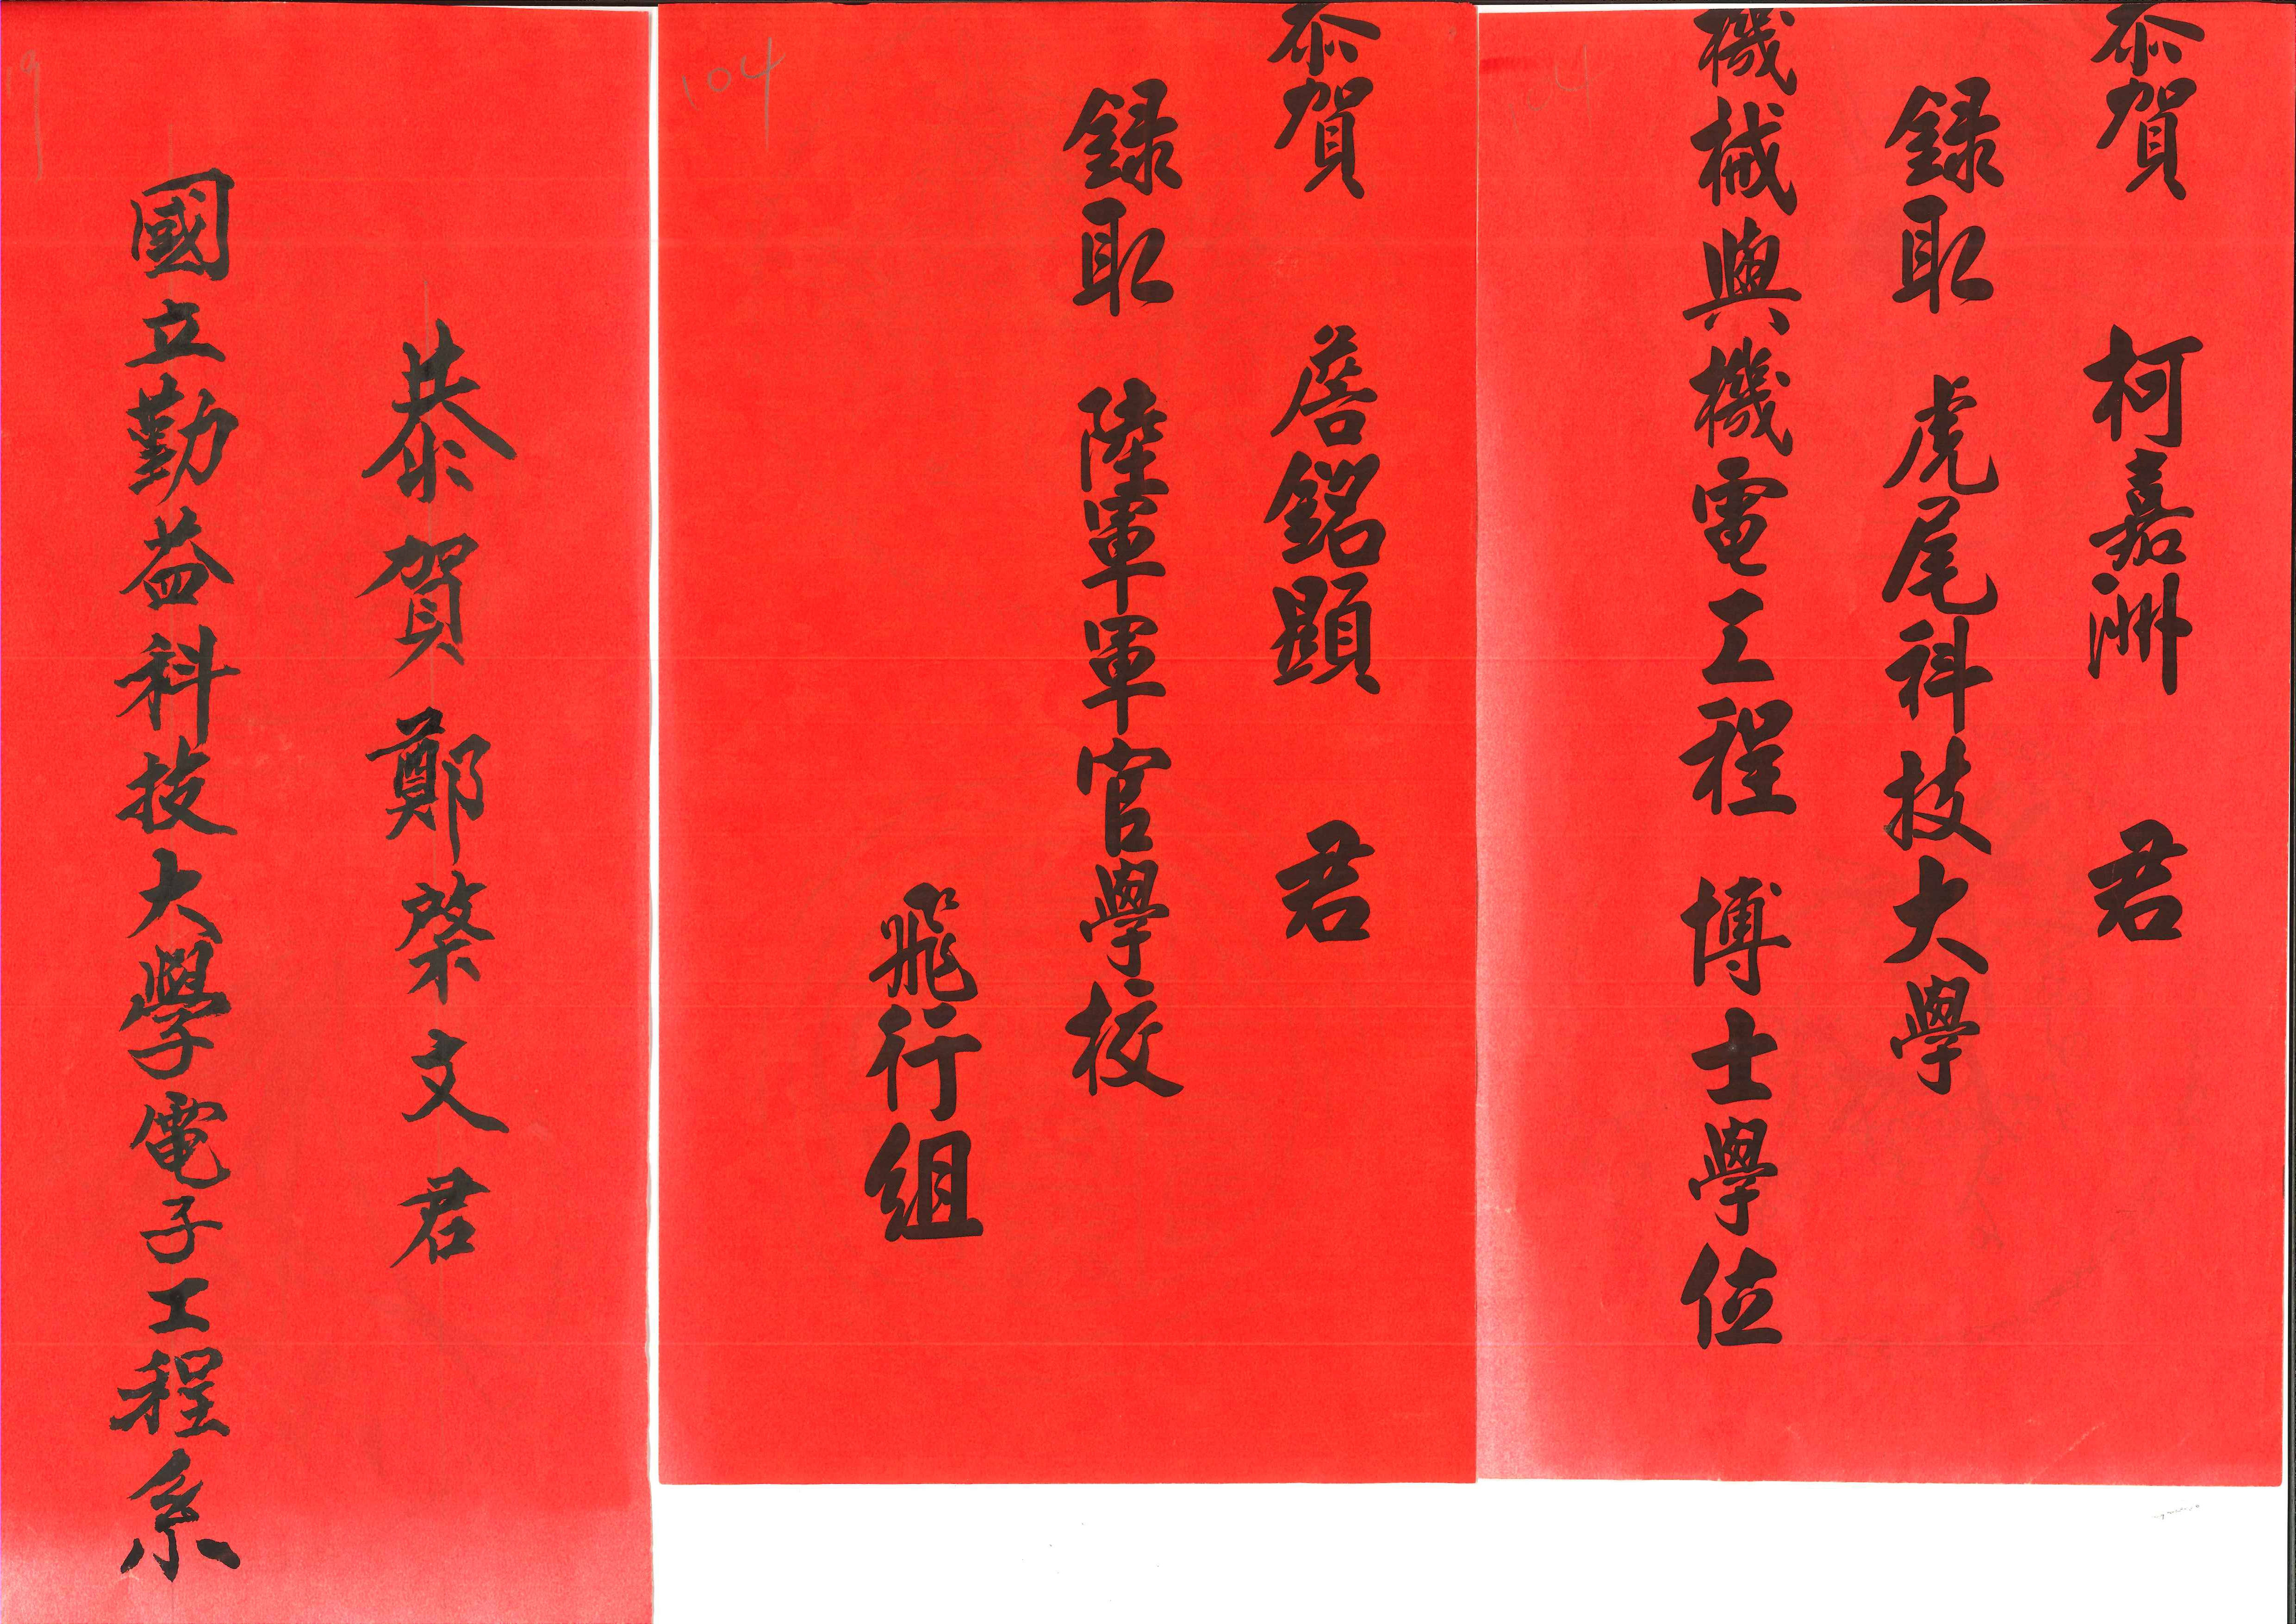 恭賀 柯嘉洲 君
録取 虎尾科技大學
機械與機電工程 博士學位
104
恭賀 詹銘顕 君
録取 陸軍軍官學校
飛行組
104
恭賀鄭棨文君
國立勤益科技大學電子工程系
19